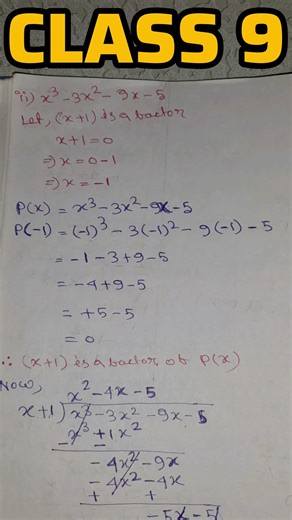 CLASS 9
ii) x³ - 3x² - 9x - 5
Let, (x+1) is a factor
x+1 = 0
⇒ x = 0 - 1
⇒ x = -1
P(x) = x³ - 3x² - 9x - 5
P(-1) = (-1)³ - 3(-1)² - 9(-1) - 5
= -1 - 3 + 9 - 5
= -4 + 9 - 5
= +5 - 5
= 0
∴ (x+1) is a factor of P(x)
Now,
x² - 4x - 5
x+1 ) x³ - 3x² - 9x - 5
x³ + 1x²
- -
-4x² - 9x
-4x² - 4x
+ +
-5x - 5